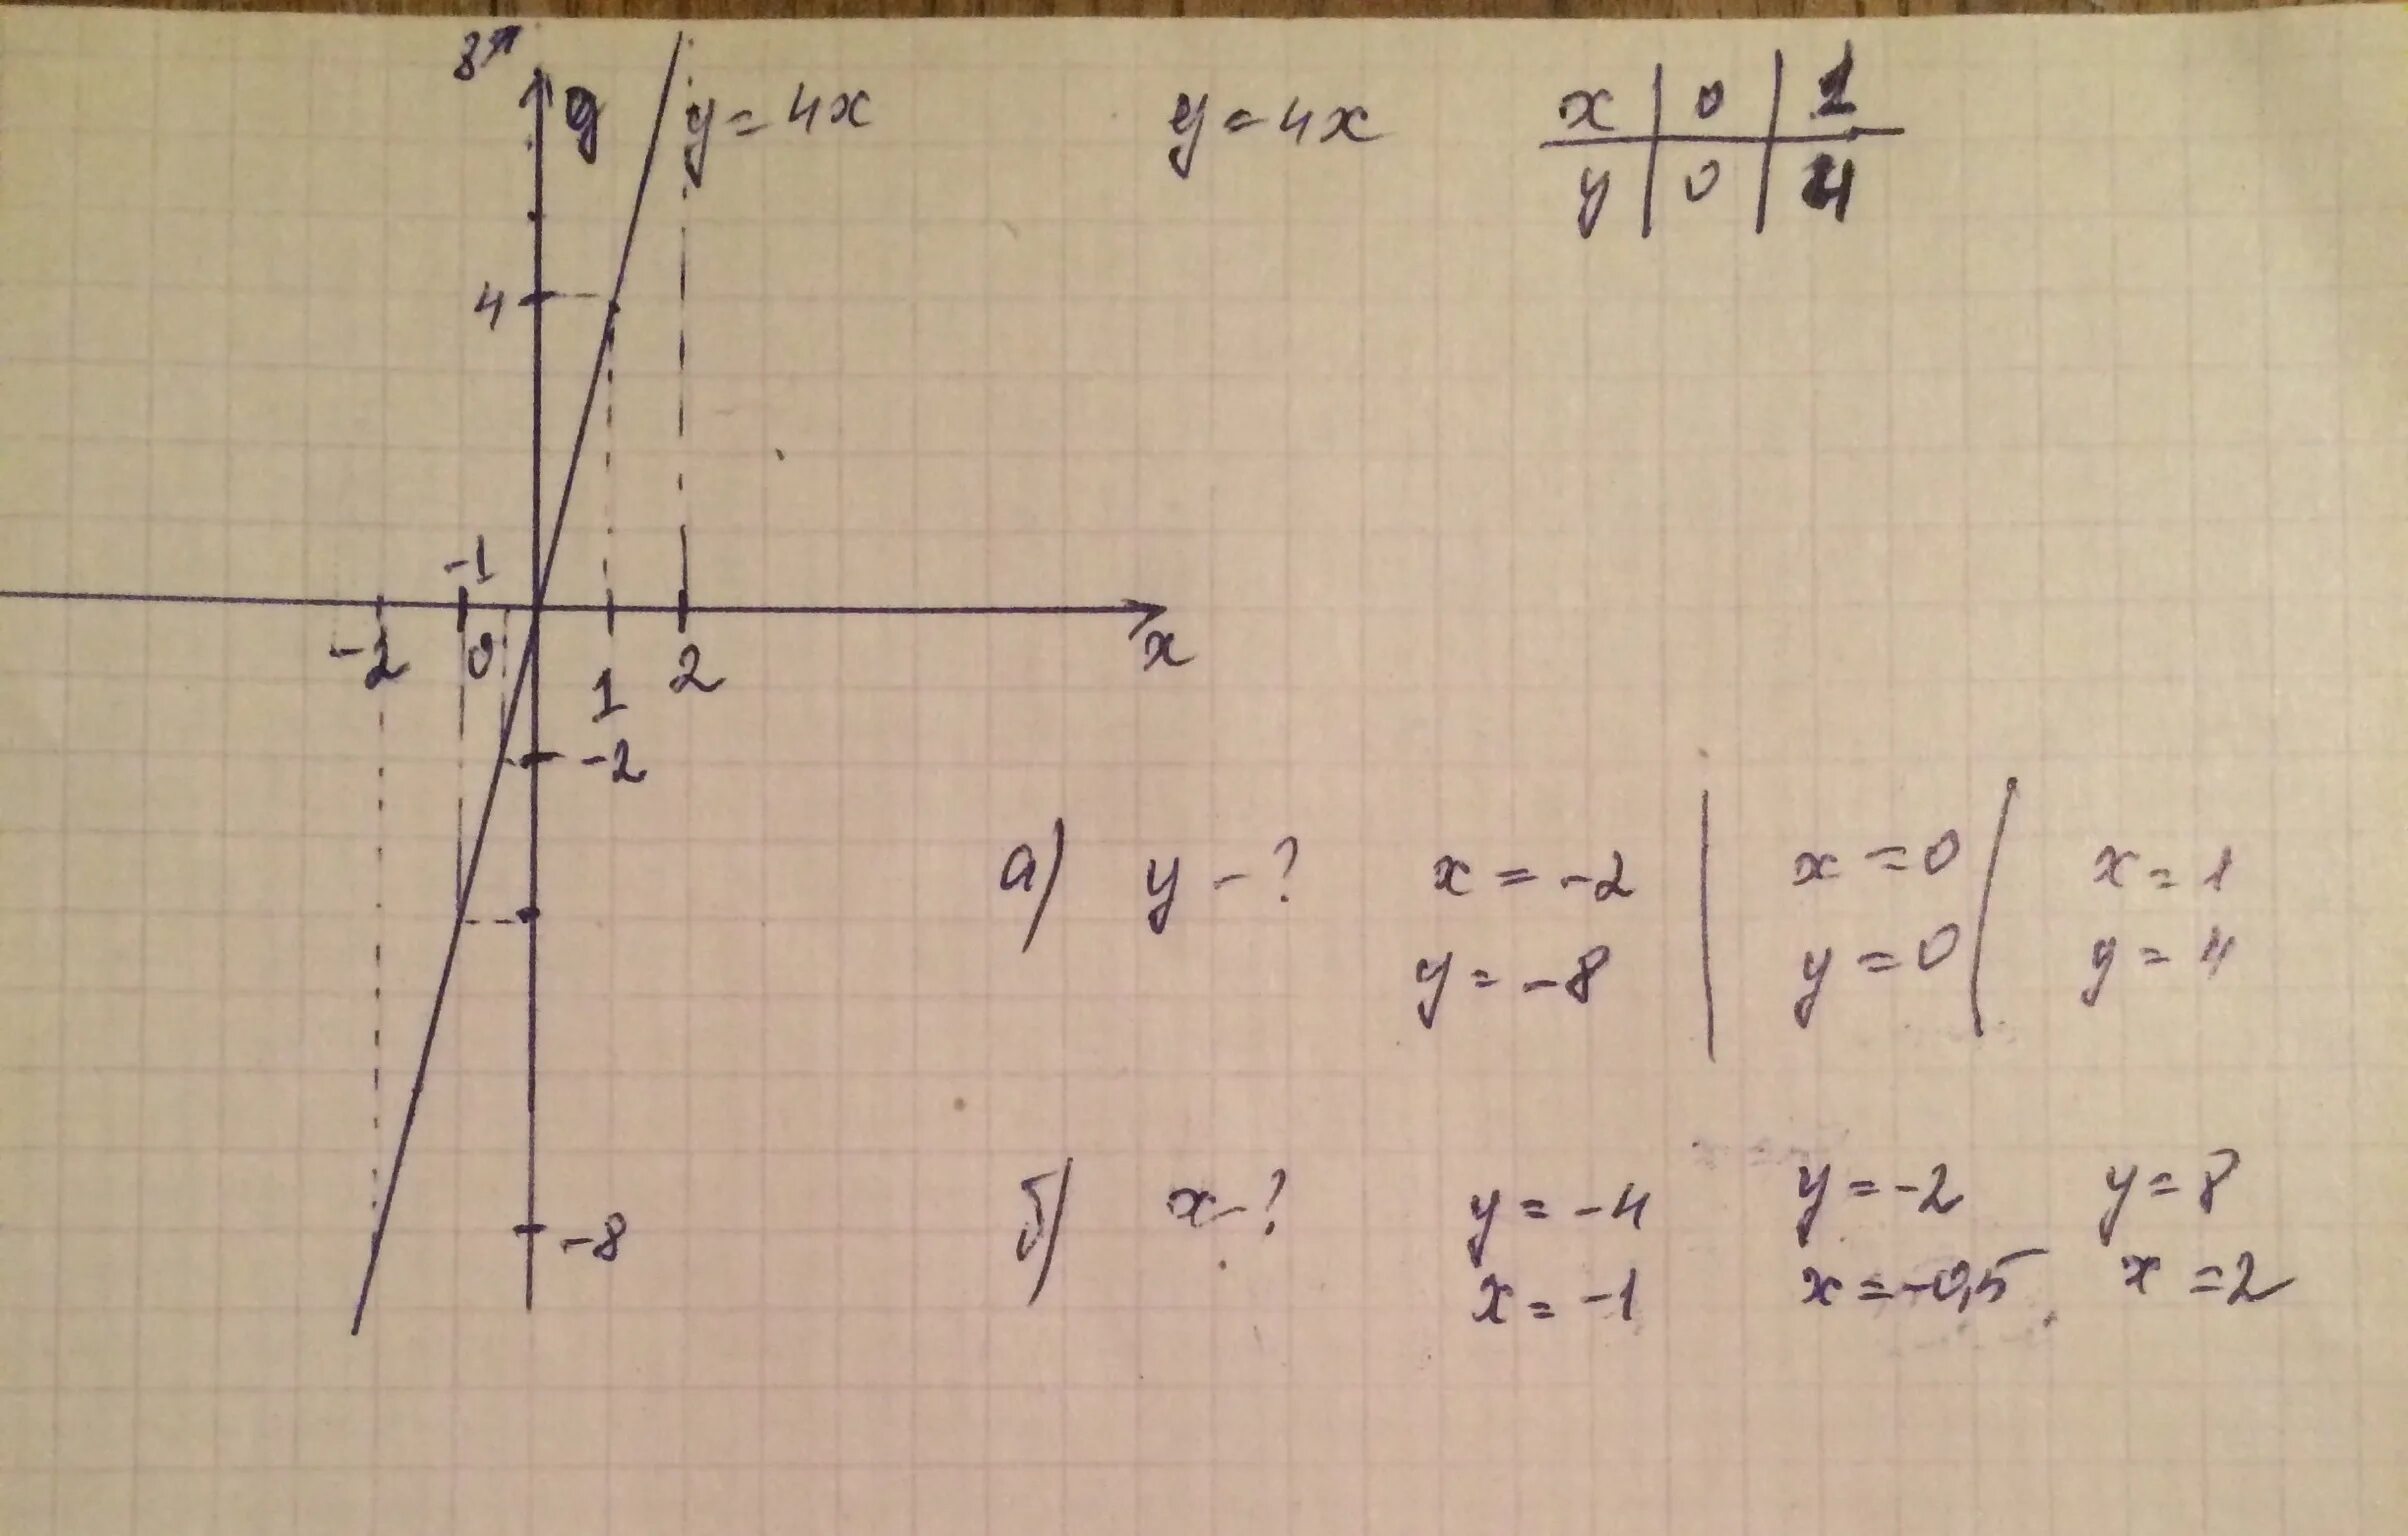 8
y y = 4x y = 4x x | 0 | 1
y | 0 | 4
4
-1
-2 0 1 2 x
-2
а) y - ? x = -2 | x = 0 | x = 1
y = -8 | y = 0 | y = 4
-8
б) x - ? y = -4 y = -2 y = 8
x = -1 x = -0,5 x = 2